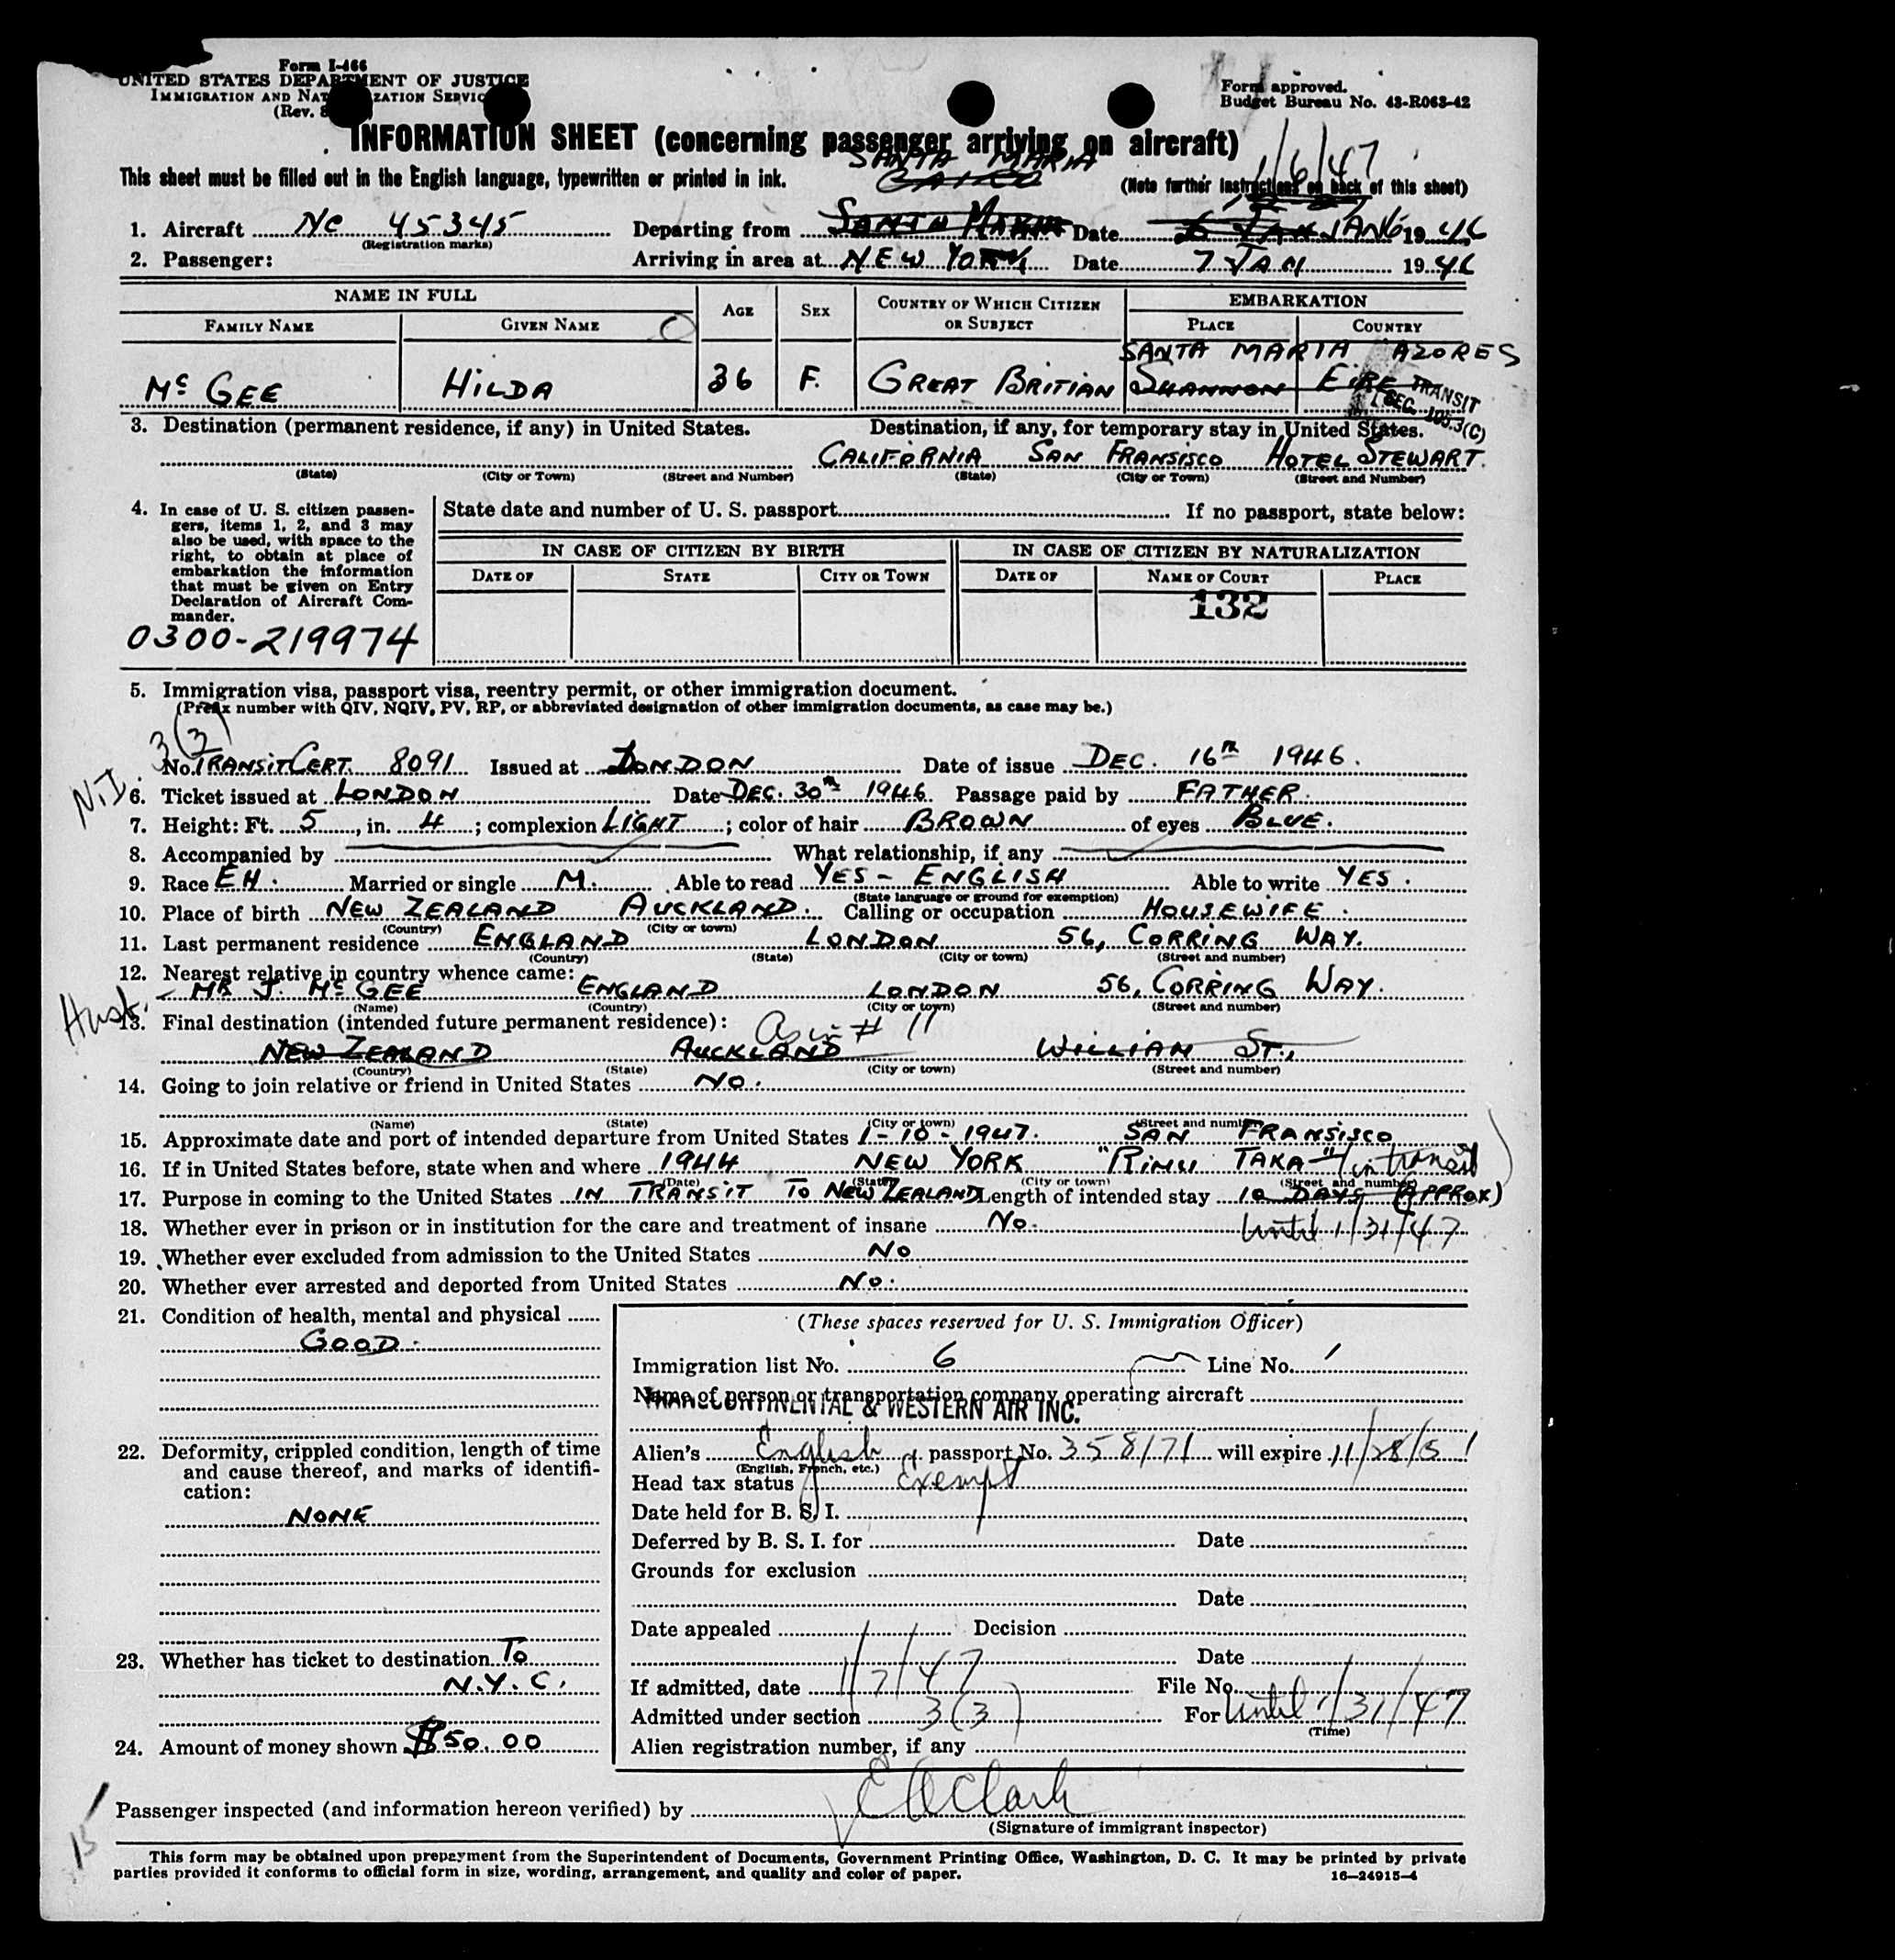 Form I-466
UNITED STATES DEPARTMENT OF JUSTICE
IMMIGRATION AND NAT ZATION SERVIC
(Rev. 8
Form approved.
Budget Bureau No. 43-R063-42
INFORMATION SHEET (concerning passenger arriving on aircraft)
SANTA MARIA 1/6/47
This sheet must be filled out in the English language, typewritten or printed in ink. CAIRO (Note further instructions on back of this sheet)
1. Aircraft NC 45345 Departing from SANTA MARIA Date 6 JAN 1946
(Registration marks)
2. Passenger: Arriving in area at NEW YORK Date 7 JAN 1946
NAME IN FULL AGE SEX COUNTRY OF WHICH CITIZEN OR SUBJECT EMBARKATION
FAMILY NAME GIVEN NAME PLACE COUNTRY
SANTA MARIA AZORES
McGEE HILDA 36 F. GREAT BRITIAN SHANNON EIRE
TRANSIT
SEC. 105.3(C)
3. Destination (permanent residence, if any) in United States. Destination, if any, for temporary stay in United States.
CALIFORNIA SAN FRANSISCO HOTEL STEWART.
(State) (City or Town) (Street and Number) (State) (City or Town) (Street and Number)
4. In case of U. S. citizen passengers, items 1, 2, and 3 may also be used, with space to the right, to obtain at place of embarkation the information that must be given on Entry Declaration of Aircraft Commander.
State date and number of U. S. passport If no passport, state below:
IN CASE OF CITIZEN BY BIRTH IN CASE OF CITIZEN BY NATURALIZATION
DATE OF STATE CITY OR TOWN DATE OF NAME OF COURT PLACE
132
0300-219974
5. Immigration visa, passport visa, reentry permit, or other immigration document.
(Prefix number with QIV, NQIV, PV, RP, or abbreviated designation of other immigration documents, as case may be.)
3(3)
No. TRANSIT CERT. 8091 Issued at LONDON Date of issue DEC. 16th 1946.
N.I.
6. Ticket issued at LONDON Date DEC. 30th 1946 Passage paid by FATHER.
7. Height: Ft. 5, in. 4; complexion LIGHT; color of hair BROWN of eyes BLUE.
8. Accompanied by What relationship, if any
9. Race EH. Married or single M. Able to read YES - ENGLISH Able to write YES.
(State language or ground for exemption)
10. Place of birth NEW ZEALAND AUCKLAND. Calling or occupation HOUSEWIFE.
(Country) (City or town)
11. Last permanent residence ENGLAND LONDON 56, CORRING WAY.
(Country) (State) (City or town) (Street and number)
12. Nearest relative in country whence came:
Husb. - MR J. McGEE ENGLAND LONDON 56, CORRING WAY.
(Name) (Country) (City or town) (Street and number)
13. Final destination (intended future permanent residence): As in # 11
NEW ZEALAND AUCKLAND WILLIAM ST.,
(Country) (State) (City or town) (Street and number)
14. Going to join relative or friend in United States NO.
(Name) (State) (City or town) (Street and number)
15. Approximate date and port of intended departure from United States 1-10-1947. SAN FRANSISCO
16. If in United States before, state when and where 1944 NEW YORK "RIMU TAKA" in transit
(Date) (State) (City or town) (Street and number)
17. Purpose in coming to the United States IN TRANSIT TO NEW ZEALAND Length of intended stay 10 DAYS (APPROX)
18. Whether ever in prison or in institution for the care and treatment of insane NO. until 1/31/47
19. Whether ever excluded from admission to the United States NO
20. Whether ever arrested and deported from United States NO.
21. Condition of health, mental and physical
GOOD.
22. Deformity, crippled condition, length of time and cause thereof, and marks of identification:
NONE
23. Whether has ticket to destination TO
N.Y.C.
24. Amount of money shown $50.00
(These spaces reserved for U. S. Immigration Officer)
Immigration list No. 6 Line No. 1
Name of person or transportation company operating aircraft
TRANSCONTINENTAL & WESTERN AIR INC.
Alien's English passport No. 358171 will expire 11/28/51
(English, French, etc.)
Head tax status Exempt
Date held for B. S. I.
Deferred by B. S. I. for Date
Grounds for exclusion
Date
Date appealed Decision
Date
If admitted, date 1/7/47 File No.
Admitted under section 3(3) For Until 1/31/47
(Time)
Alien registration number, if any
Passenger inspected (and information hereon verified) by E A Clark
(Signature of immigrant inspector)
15
This form may be obtained upon prepayment from the Superintendent of Documents, Government Printing Office, Washington, D. C. It may be printed by private
parties provided it conforms to official form in size, wording, arrangement, and quality and color of paper. 16-24915-4